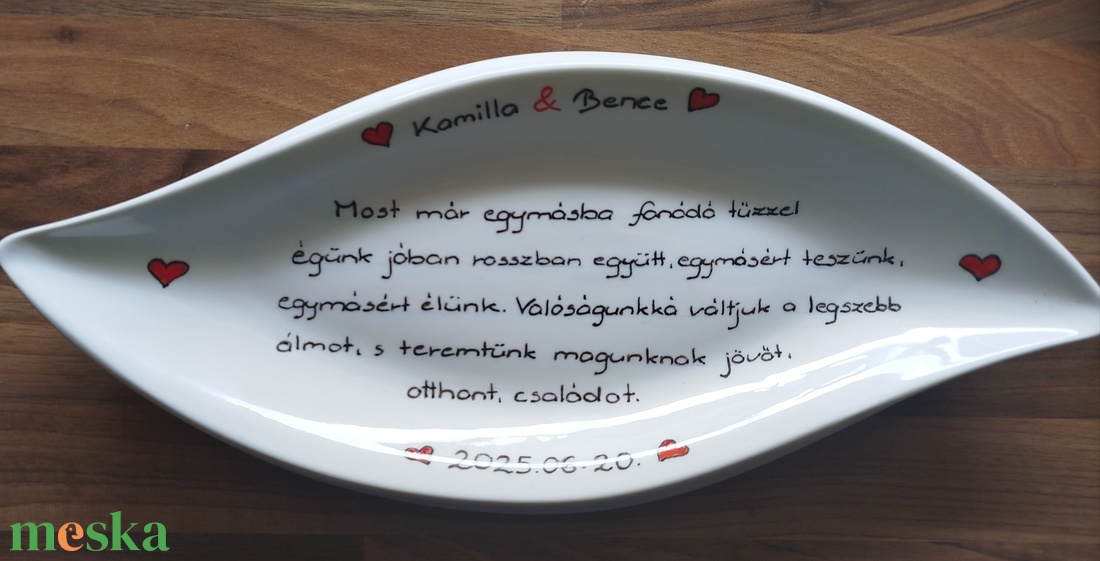 Kamilla & Bence
Most már egymásba fonódó tűzzel
égünk jóban rosszban együtt, egymásért teszünk,
egymásért élünk. Valóságunkká váltjuk a legszebb
álmot, s teremtünk magunknak jövőt,
otthont, családot.
2025.06.20.
meska